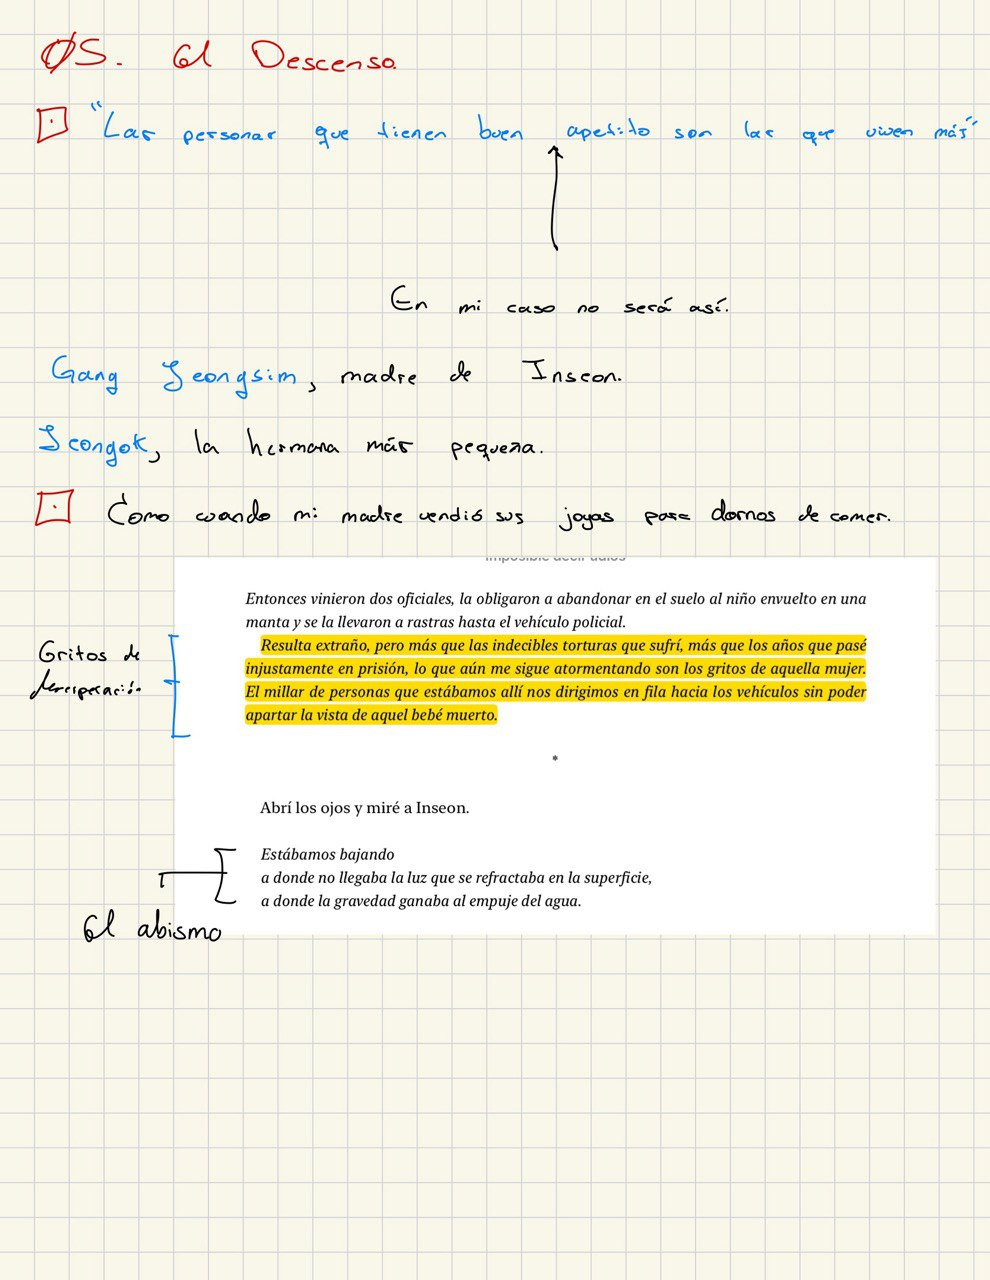 05. El Descenso.
"Las personas que tienen buen apetito son las que viven más"
En mi caso no será así.
Gang Jeongsim, madre de Inseon.
Jeongok, la hermana más pequeña.
Como cuando mi madre vendió sus joyas para darnos de comer.
imposible decir adiós
Entonces vinieron dos oficiales, la obligaron a abandonar en el suelo al niño envuelto en una
manta y se la llevaron a rastras hasta el vehículo policial.
Resulta extraño, pero más que las indecibles torturas que sufrí, más que los años que pasé
injustamente en prisión, lo que aún me sigue atormentando son los gritos de aquella mujer.
El millar de personas que estábamos allí nos dirigimos en fila hacia los vehículos sin poder
apartar la vista de aquel bebé muerto.
Gritos de
desesperación.
*
Abrí los ojos y miré a Inseon.
Estábamos bajando
a donde no llegaba la luz que se refractaba en la superficie,
a donde la gravedad ganaba al empuje del agua.
El abismo